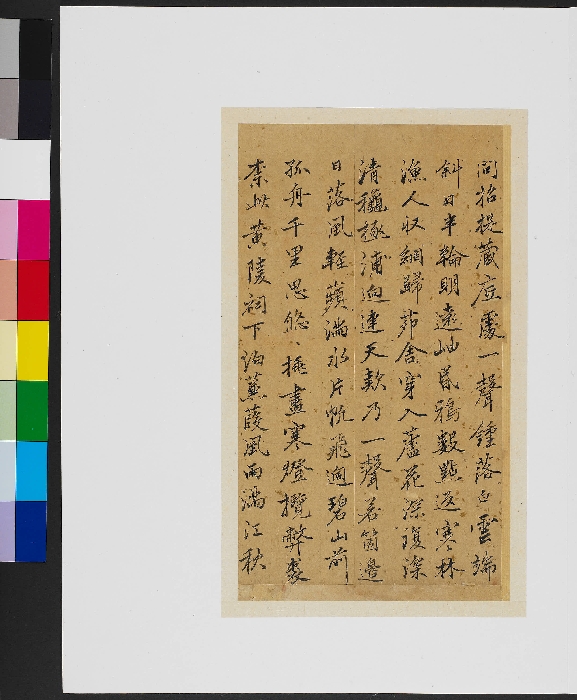 問招提藏底處一聲鍾落白雲端
斜日半輪明遠岫昏鴉數點返寒林
漁人収網歸茆舎穿入蘆花深復深
清穐浦逈連天欵乃一聲若箇邊
日落風輕蘋滿水片帆飛過碧山前
孤舟千里思悠〻盡寒燈攬弊裘
柰此黄陵祠下泊蒹葭風雨滿江秋